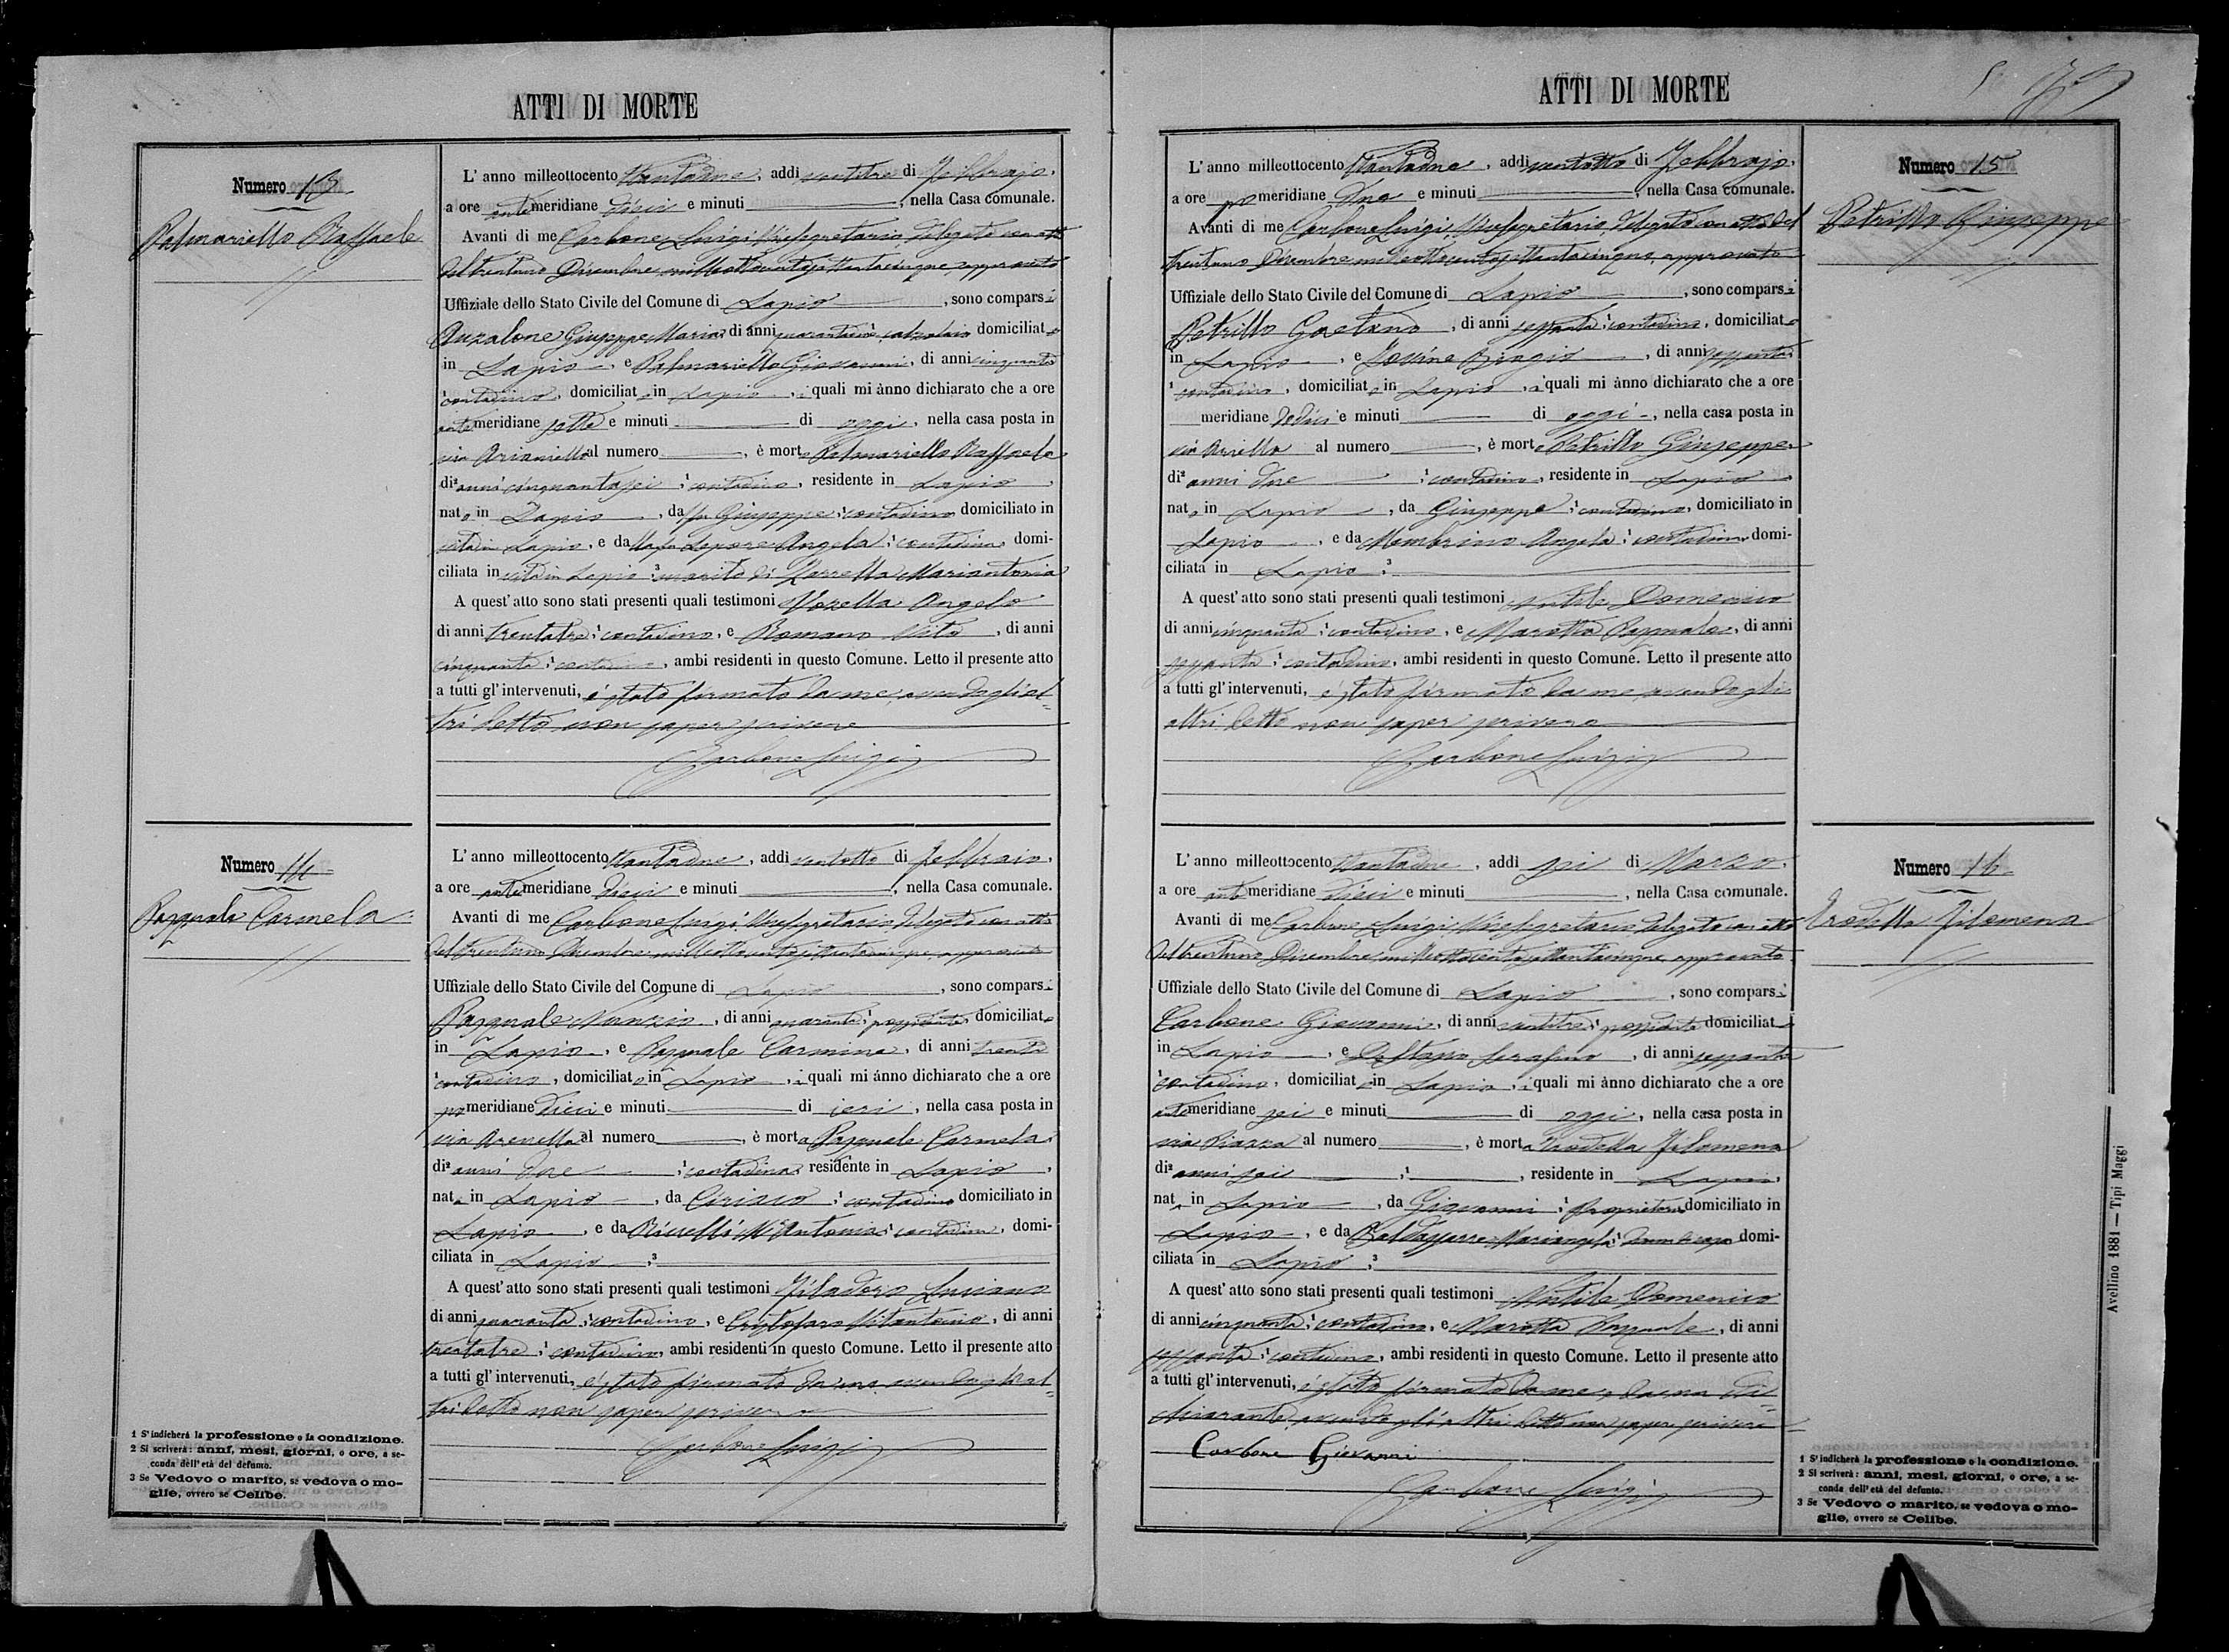 ATTI DI MORTE
Numero 13
Palmariello Raffaele
L'anno milleottocento ottantadue, addi ventitre di Febbrajo,
a ore antemeridiane dieci e minuti, nella Casa comunale.
Avanti di me Carbone Luigi Vicesegretario delegato con atto
del trentuno Dicembre milleottocentosettantacinque, approvato
Uffiziale dello Stato Civile del Comune di Lapio, sono comparsi
Giuseppe Maria di anni domiciliato
in Lapio, e Palmariello Giovanni, di anni cinquanta
contadino, domiciliato in Lapio, i quali mi ànno dichiarato che a ore
antemeridiane sette e minuti di oggi, nella casa posta in
via al numero, è morto Palmariello Raffaele
di anni cinquantasei, contadino, residente in Lapio,
nato in Lapio, da fu Giuseppe, contadino domiciliato in
vita in Lapio, e dalla fu Lepore Angela, contadina, domi-
ciliata in vita in Lapio, marito di Zarrella Mariantonia
A quest'atto sono stati presenti quali testimoni Vozella Angelo
di anni trentatre, contadino, e Romano Vito, di anni
cinquanta, contadino, ambi residenti in questo Comune. Letto il presente atto
a tutti gl'intervenuti, è stato firmato da me, avendo gli al-
tri detto non saper scrivere
Carbone Luigi
Numero 14
Pasquale Carmela
L'anno milleottocento ottantadue, addi ventotto di Febbraio,
a ore antemeridiane dieci e minuti, nella Casa comunale.
Avanti di me Carbone Luigi Vicesegretario delegato con atto
del trentuno Dicembre milleottocentosettantacinque approvato
Uffiziale dello Stato Civile del Comune di Lapio, sono comparsi
Pasquale Nunzio, di anni quaranta, possidente, domiciliato
in Lapio, e Pasquale Carmine, di anni trenta
contadino, domiciliato in Lapio, i quali mi ànno dichiarato che a ore
pomeridiane dieci e minuti di ieri, nella casa posta in
via Arenella al numero, è morta Pasquale Carmela
di anni due, contadina, residente in Lapio,
nata in Lapio, da Ciriaco, contadino domiciliato in
Lapio, e da M. Antonia, contadina, domi-
ciliata in Lapio,
A quest'atto sono stati presenti quali testimoni Filadoro Luciano
di anni quaranta, contadino, e Cristofaro Vitantonio, di anni
trentatre, contadino, ambi residenti in questo Comune. Letto il presente atto
a tutti gl'intervenuti, è stato firmato da me, avendo gli al-
tri detto non saper scrivere
Carbone Luigi
1 S'indicherà la professione o la condizione.
2 Si scriverà: anni, mesi, giorni, o ore, a se-
conda dell'età del defunto.
3 Se Vedovo o marito, se vedova o mo-
glie, ovvero se Celibe.
ATTI DI MORTE
Numero 15
Petrillo Giuseppe
L'anno milleottocento ottantadue, addi ventotto di Febbrajo,
a ore pomeridiane una e minuti, nella Casa comunale.
Avanti di me Carbone Luigi, Vicesegretario, delegato con atto del
trentuno Dicembre milleottocentosettantacinque, approvato
Uffiziale dello Stato Civile del Comune di Lapio, sono comparsi
Petrillo Gaetano, di anni sessanta, contadino, domiciliato
in Lapio, e Biagio, di anni sessanta
contadino, domiciliato in Lapio, i quali mi ànno dichiarato che a ore
meridiane dodici e minuti di oggi, nella casa posta in
via al numero, è morto Petrillo Giuseppe
di anni due, contadino, residente in Lapio
nato in Lapio, da Giuseppe, contadino, domiciliato in
Lapio, e da Membrino Angela, contadina domi-
ciliata in Lapio,
A quest'atto sono stati presenti quali testimoni Nutile Domenico
di anni cinquanta, contadino, e Marotta Pasquale, di anni
sessanta, contadino, ambi residenti in questo Comune. Letto il presente atto
a tutti gl'intervenuti, è stato firmato da me, avendo gli
altri detto non saper scrivere
Carbone Luigi
Numero 16
Filomena
L'anno milleottocento ottantadue, addi sei di Marzo,
a ore antemeridiane dieci e minuti, nella Casa comunale.
Avanti di me Carbone Luigi Vicesegretario delegato con atto
del trentuno Dicembre milleottocentosettantacinque, approvato
Uffiziale dello Stato Civile del Comune di Lapio, sono comparsi
Carbone Giovanni, di anni ventitre, possidente domiciliato
in Lapio, e Serafino, di anni sessanta
contadino, domiciliato in Lapio, i quali mi ànno dichiarato che a ore
antemeridiane sei e minuti di oggi, nella casa posta in
via Piazza al numero, è morta Filomena
di anni sei, residente in Lapio,
nata in Lapio, da Giovanni, Proprietario domiciliato in
Lapio, e da Baldassarre Mariangela, donna di casa domi-
ciliata in Lapio,
A quest'atto sono stati presenti quali testimoni Nutile Domenico
di anni cinquanta, contadino, e Marotta Pasquale, di anni
sessanta, contadino, ambi residenti in questo Comune. Letto il presente atto
a tutti gl'intervenuti, è stato firmato da me, e da un di-
chiarante, avendo gli altri detto non saper scrivere
Carbone Giovanni
Carbone Luigi
1 S'indicherà la professione o la condizione.
2 Si scriverà: anni, mesi, giorni, o ore, a se-
conda dell'età del defunto.
3 Se Vedovo o marito, se vedova o mo-
glie, ovvero se Celibe.
Avellino 1881 — Tipi Maggi